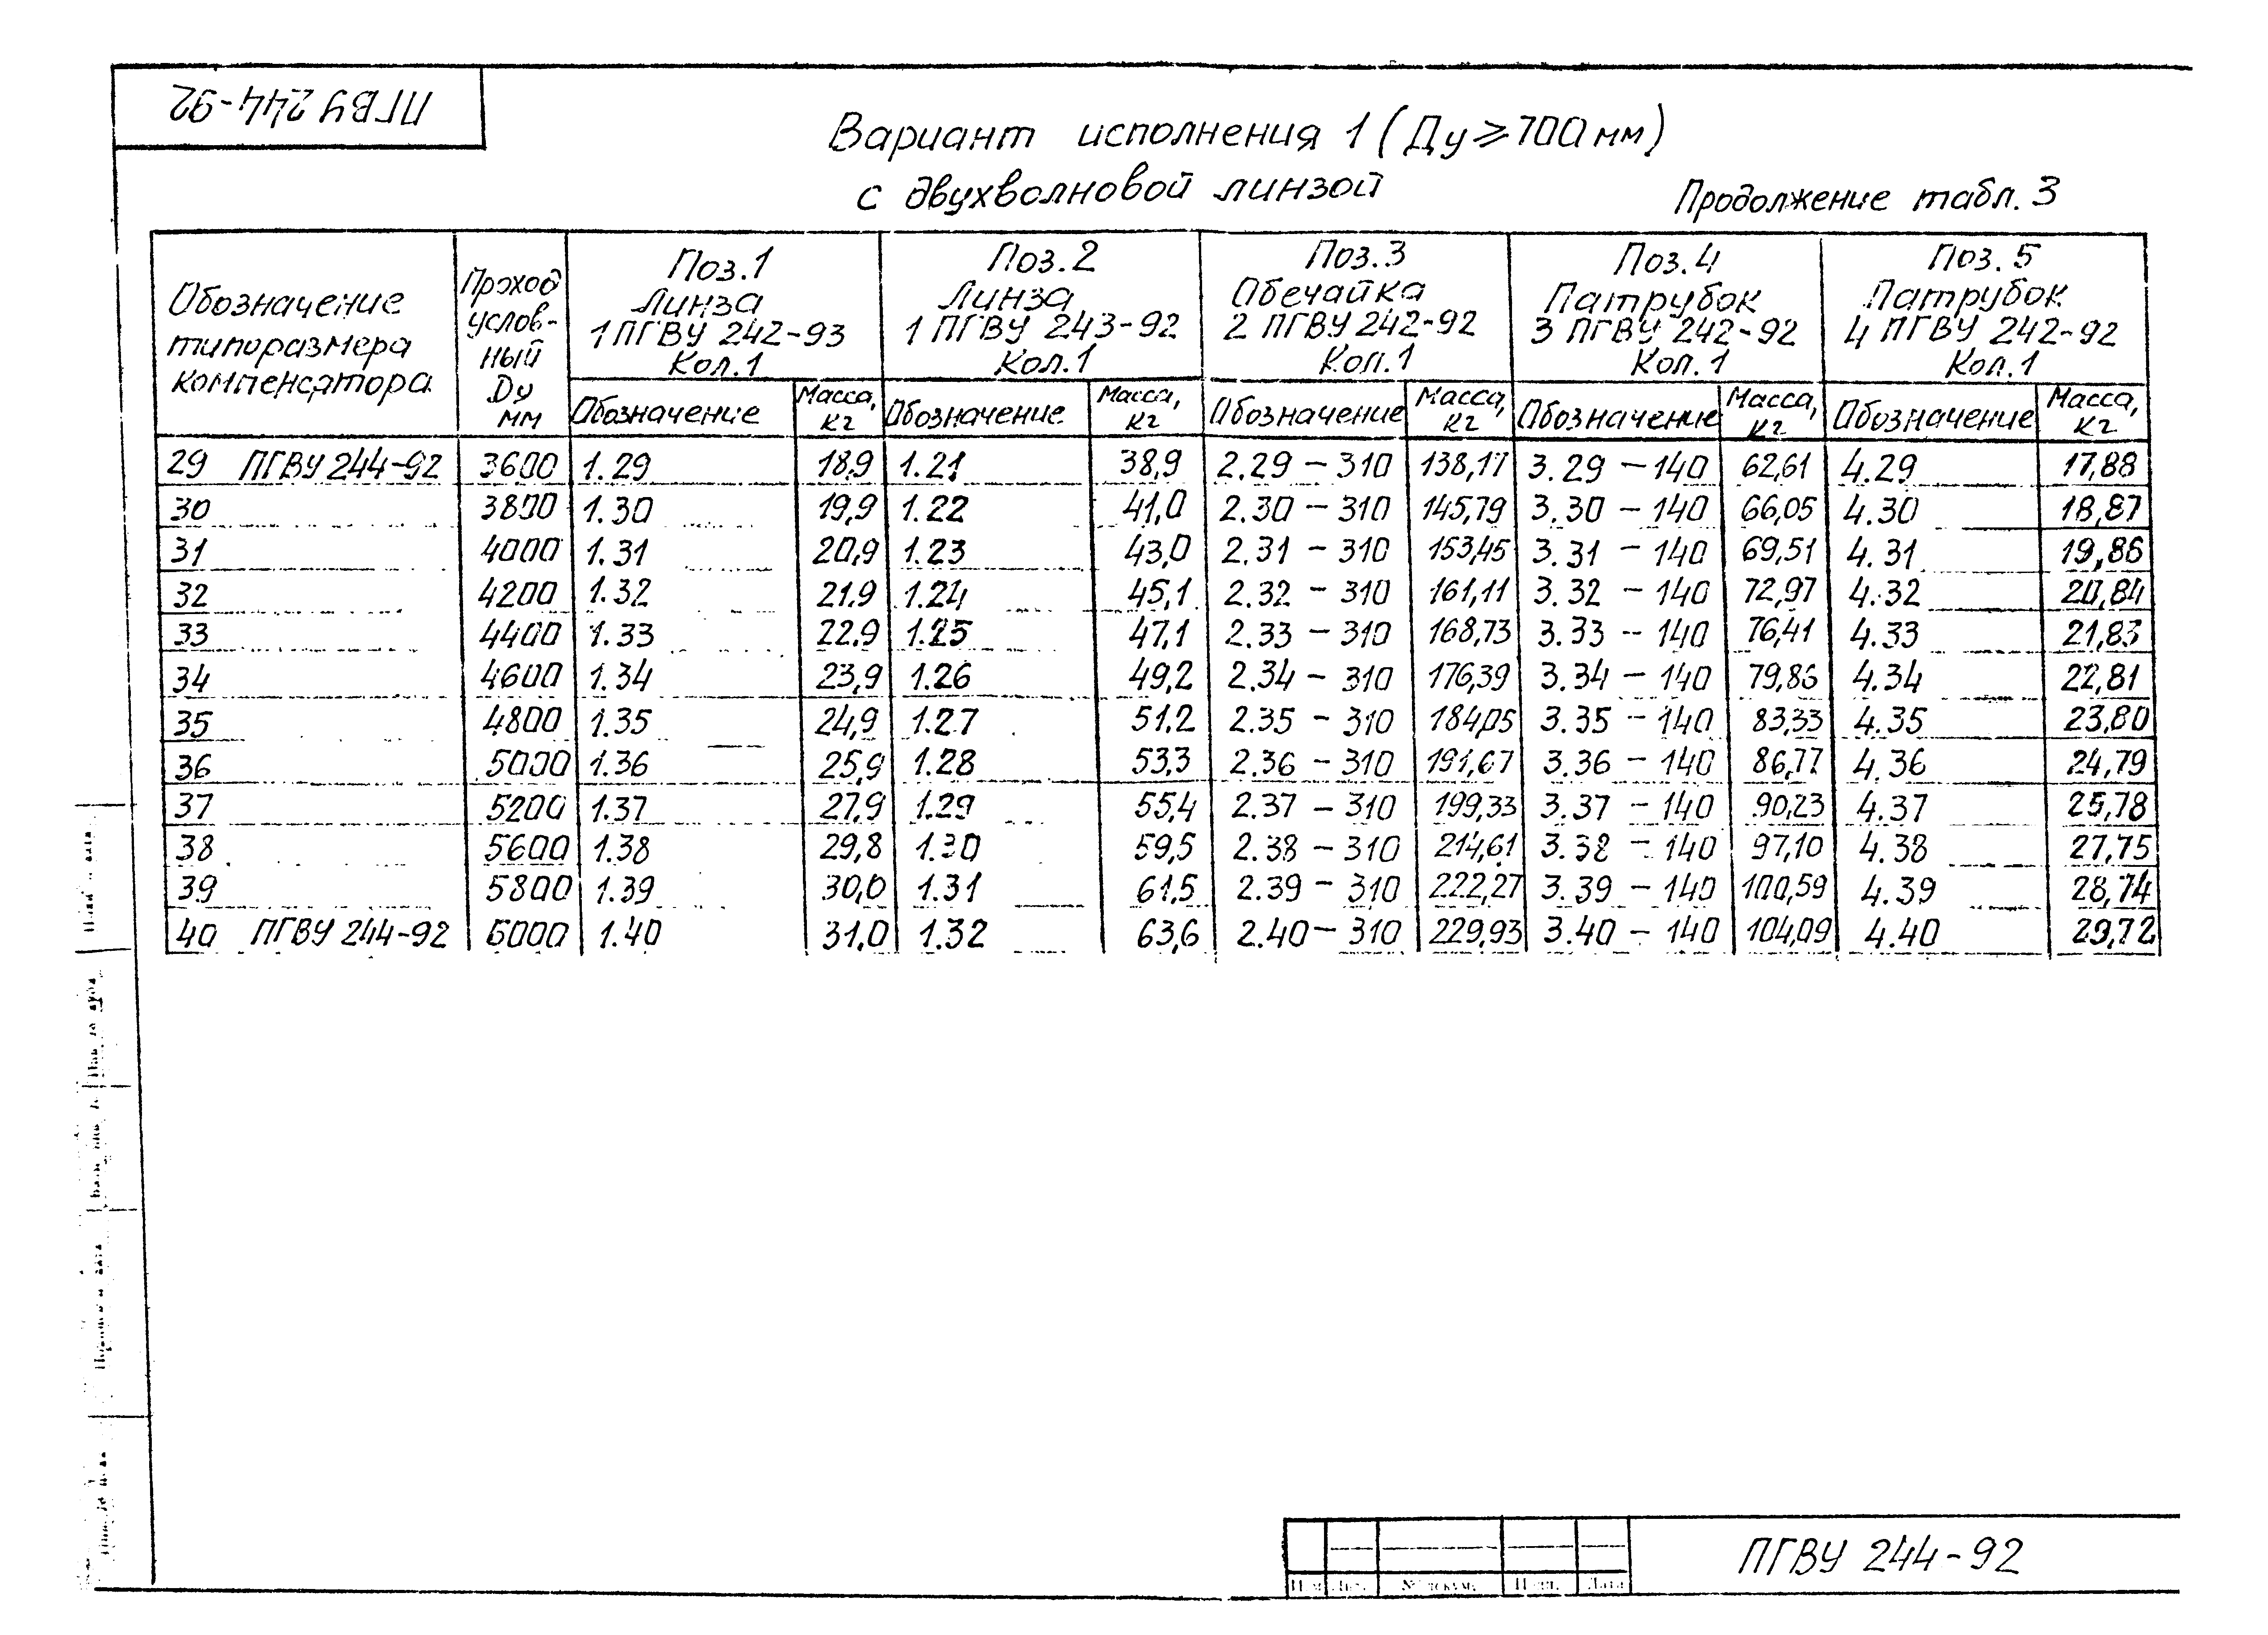 ПГВУ 244-92
Вариант исполнения 1 (Ду ⩾ 700 мм)
с двухволновой линзой
Продолжение табл. 3
Обозначение типоразмера компенсатора | Проход услов-ный Dу мм | Поз.1 Линза 1 ПГВУ 242-93 Кол.1 | Поз.2 Линза 1 ПГВУ 243-92 Кол.1 | Поз.3 Обечайка 2 ПГВУ 242-92 Кол.1 | Поз.4 Патрубок 3 ПГВУ 242-92 Кол.1 | Поз.5 Патрубок 4 ПГВУ 242-92 Кол.1
Обозначение | Масса, кг | Обозначение | Масса, кг | Обозначение | Масса, кг | Обозначение | Масса, кг | Обозначение | Масса, кг
29 ПГВУ 244-92 | 3600 | 1.29 | 18,9 | 1.21 | 38,9 | 2.29 – 310 | 138,17 | 3.29 – 140 | 62,61 | 4.29 | 17,88
30 | 3800 | 1.30 | 19,9 | 1.22 | 41,0 | 2.30 – 310 | 145,79 | 3.30 – 140 | 66,05 | 4.30 | 18,87
31 | 4000 | 1.31 | 20,9 | 1.23 | 43,0 | 2.31 – 310 | 153,45 | 3.31 – 140 | 69,51 | 4.31 | 19,86
32 | 4200 | 1.32 | 21,9 | 1.24 | 45,1 | 2.32 – 310 | 161,11 | 3.32 – 140 | 72,97 | 4.32 | 20,84
33 | 4400 | 1.33 | 22,9 | 1.25 | 47,1 | 2.33 – 310 | 168,73 | 3.33 – 140 | 76,41 | 4.33 | 21,83
34 | 4600 | 1.34 | 23,9 | 1.26 | 49,2 | 2.34 – 310 | 176,39 | 3.34 – 140 | 79,86 | 4.34 | 22,81
35 | 4800 | 1.35 | 24,9 | 1.27 | 51,2 | 2.35 – 310 | 184,05 | 3.35 – 140 | 83,33 | 4.35 | 23,80
36 | 5000 | 1.36 | 25,9 | 1.28 | 53,3 | 2.36 – 310 | 191,67 | 3.36 – 140 | 86,77 | 4.36 | 24,79
37 | 5200 | 1.37 | 27,9 | 1.29 | 55,4 | 2.37 – 310 | 199,33 | 3.37 – 140 | 90,23 | 4.37 | 25,78
38 | 5600 | 1.38 | 29,8 | 1.30 | 59,5 | 2.38 – 310 | 214,61 | 3.38 – 140 | 97,10 | 4.38 | 27,75
39 | 5800 | 1.39 | 30,0 | 1.31 | 61,5 | 2.39 – 310 | 222,27 | 3.39 – 140 | 100,59 | 4.39 | 28,74
40 ПГВУ 244-92 | 6000 | 1.40 | 31,0 | 1.32 | 63,6 | 2.40 – 310 | 229,93 | 3.40 – 140 | 104,09 | 4.40 | 29,72
ПГВУ 244-92